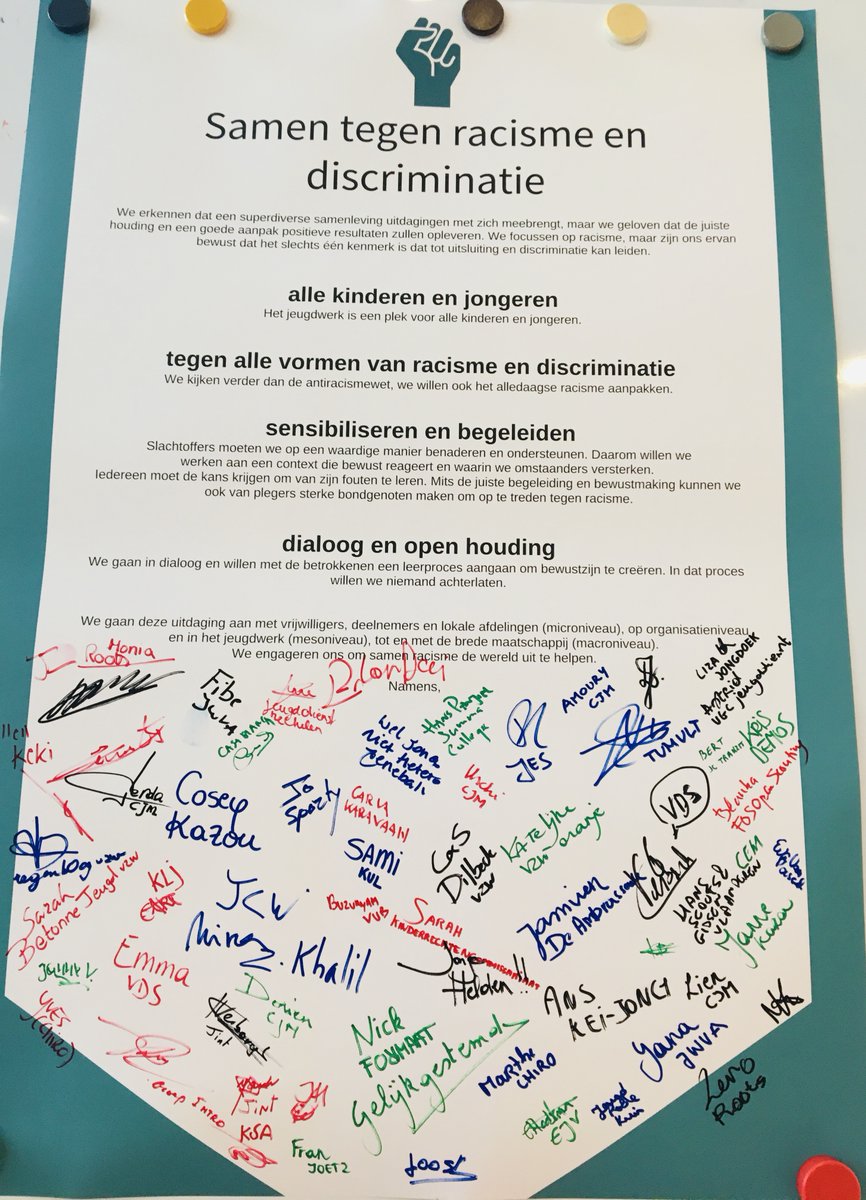 Samen tegen racisme en
discriminatie
We erkennen dat een superdiverse samenleving uitdagingen met zich meebrengt, maar we geloven dat de juiste
houding en een goede aanpak positieve resultaten zullen opleveren. We focussen op racisme, maar zijn ons ervan
bewust dat het slechts één kenmerk is dat tot uitsluiting en discriminatie kan leiden.
alle kinderen en jongeren
Het jeugdwerk is een plek voor alle kinderen en jongeren.
tegen alle vormen van racisme en discriminatie
We kijken verder dan de antiracismewet, we willen ook het alledaagse racisme aanpakken.
sensibiliseren en begeleiden
Slachtoffers moeten we op een waardige manier benaderen en ondersteunen. Daarom willen we
werken aan een context die bewust reageert en waarin we omstaanders versterken.
Iedereen moet de kans krijgen om van zijn fouten te leren. Mits de juiste begeleiding en bewustmaking kunnen we
ook van plegers sterke bondgenoten maken om op te treden tegen racisme.
dialoog en open houding
We gaan in dialoog en willen met de betrokkenen een leerproces aangaan om bewustzijn te creëren. In dat proces
willen we niemand achterlaten.
We gaan deze uitdaging aan met vrijwilligers, deelnemers en lokale afdelingen (microniveau), op organisatieniveau
en in het jeugdwerk (mesoniveau), tot en met de brede maatschappij (macroniveau).
We engageren ons om samen racisme de wereld uit te helpen.
Namens,
Monia
Roots
LIZA
JONGDOEK
Astrid
VGC jeugddienst
Fibe
JWA
jeugddienst
Mechelen
AMOURY
CJM
JES
TUMULT
BERT
KRIS
DEMOS
Wel Jona
Niet Heters
CJM
VDS
Blanka
FOS Open Scouting
CJM
Cosey
Kazou
CARLA
KARAVAAN
SAMI
KUL
CAS
Dilbeek
VZW
Katelijne
vzw oranje
Sarah
Betonne Jeugd vzw
KLJ
JCW
VUB
SARAH
KINDERRECHTENCOMMISSARIAAT
De Ambrassade
HANS
SCOUTS &
GIDSEN
VLAANDEREN
CCM
Hanne
Kazou
Emma
VDS
Mirez. Khalil
Helden!!
YVES
(CHIRO)
CJM
Jint
Nick
FORMAAT
Gelijkgestemd
ANS
KEI-JONG
Lien
CJM
Yana
JWVA
Marthe
CHIRO
Zero
Roots
Groep INTRO
JINT
KSA
Fran
JOETZ
EJV
Joost